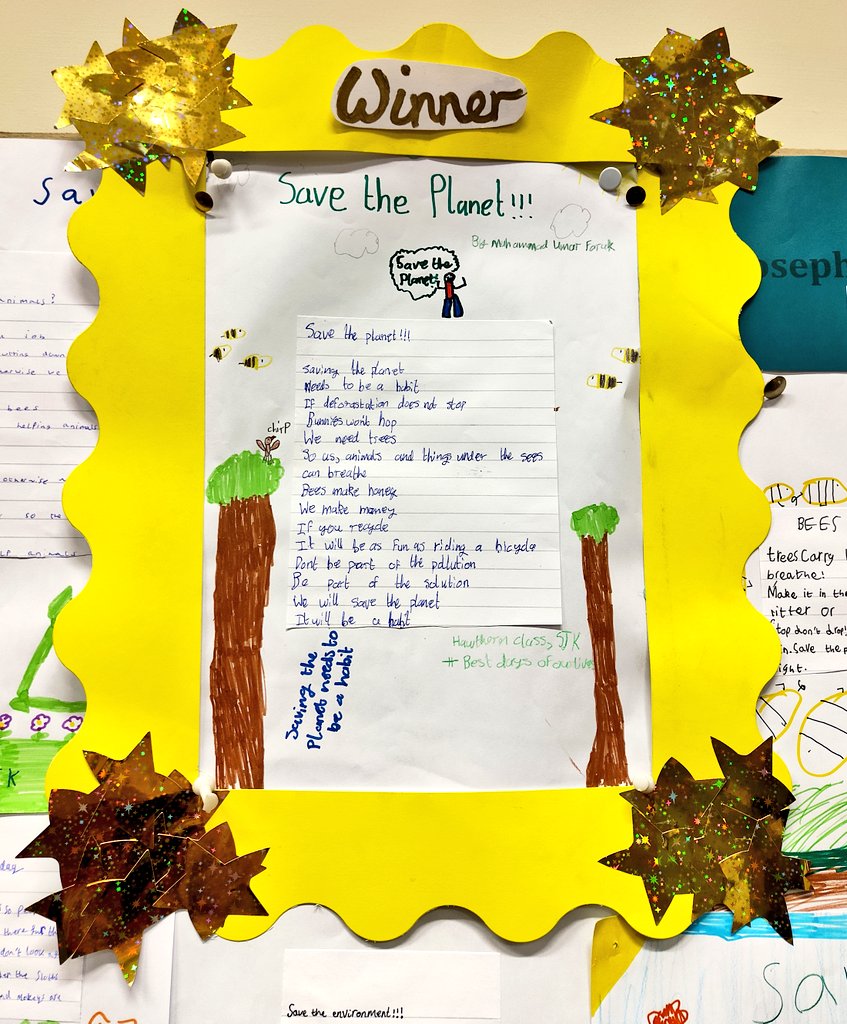 Winner
Save the Planet!!!
By Muhammad Umar Faruk
Save the
Planet!
Save the planet!!!
saving the planet
Needs to be a habit
If deforestation does not stop
Bunnies won't hop
We need trees
So us, animals and things under the sees
can breathe
Bees make honey
We make money
If you recycle
It will be as fun as riding a bicycle
Dont be part of the pollution
Be part of the solution
We will save the planet
It will be a habit
chirp
Hawthorn class, SJK
# Best days of our lives
Saving the
Planet needs to
be a habit
Sav
animals?
job
bees
helping animals
so the
animals
K
day
don't look
oseph
BEES
trees Carry
breathe!
Make it in the
litter or
Stop don't drop
in. Save the P
ight.
Save the environment!!!
Sav